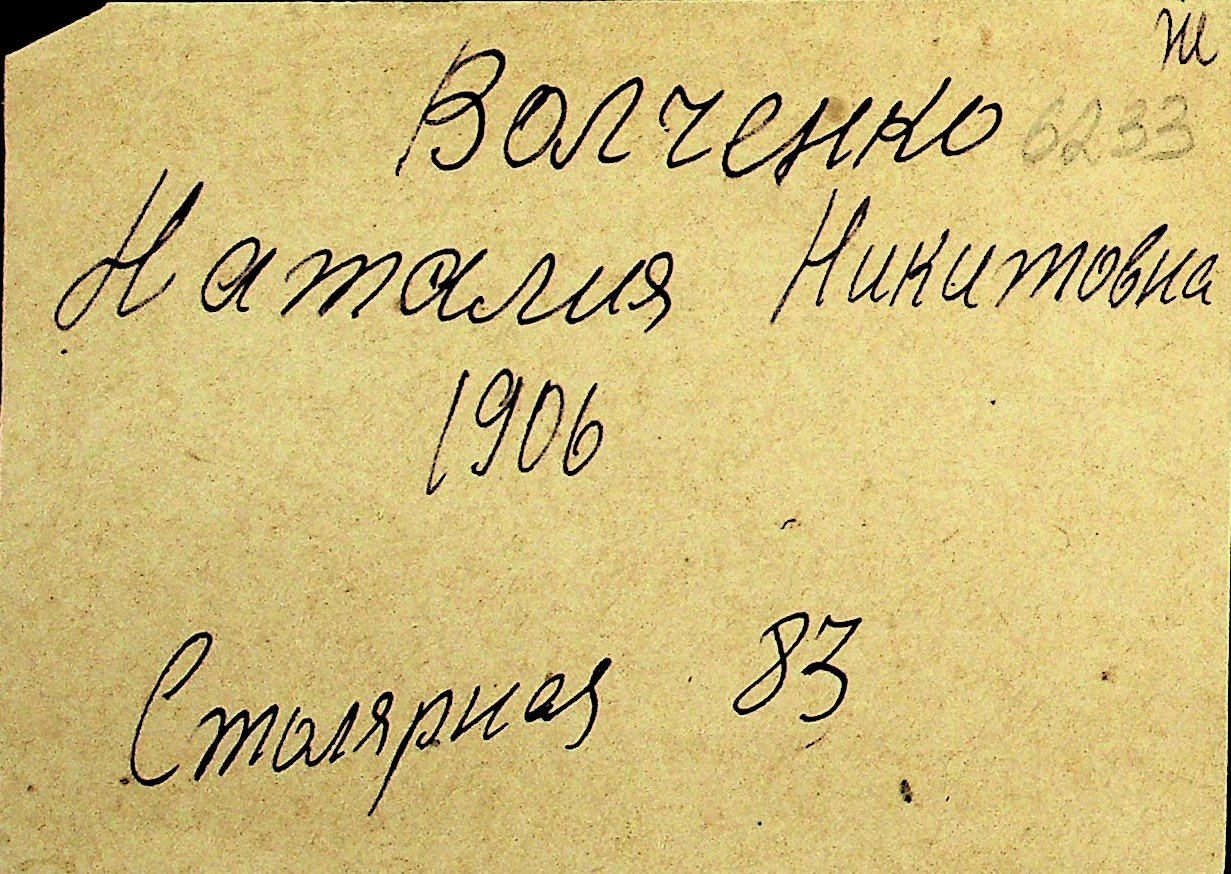 Ж
Волченко 6233
Наталия Никитовна
1906
Столярная 83